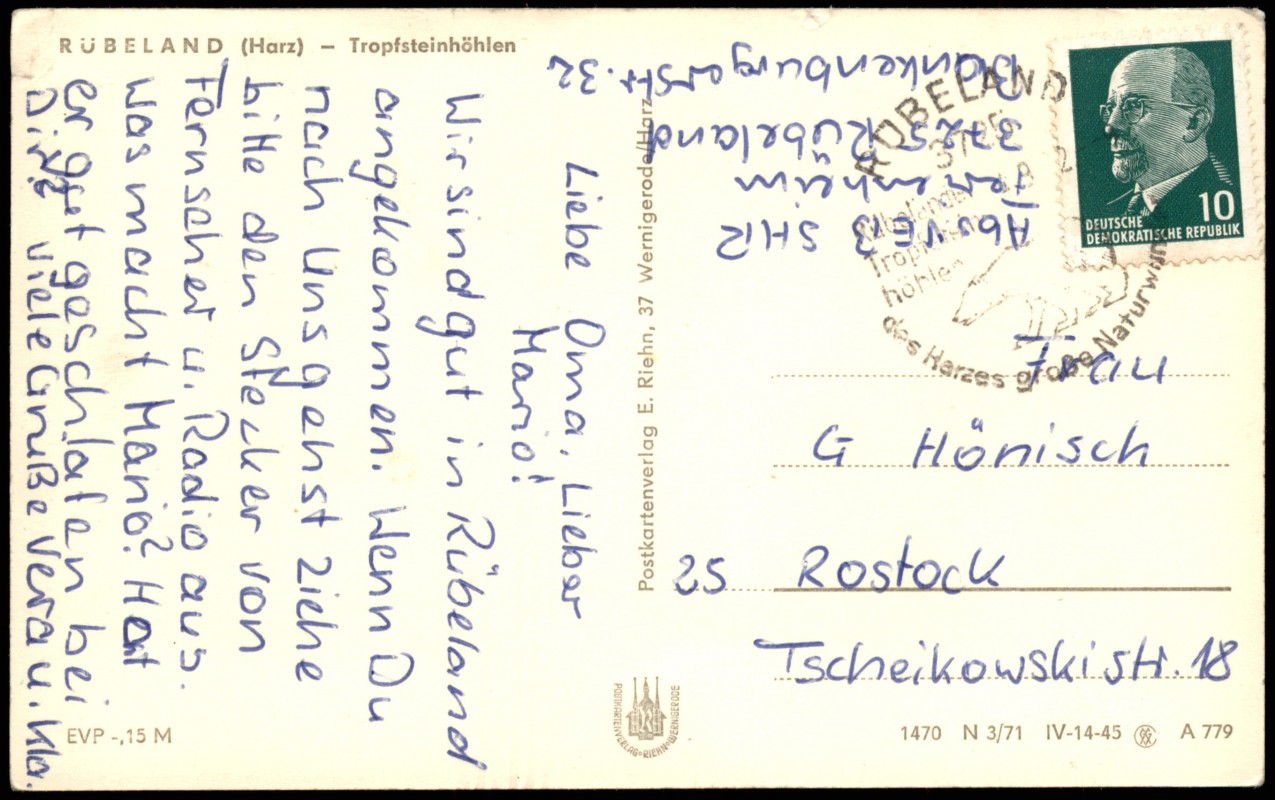 RÜBELAND (Harz) – Tropfsteinhöhlen
Liebe Oma, Lieber
Mario!
Wir sind gut in Rübeland
angekommen. Wenn Du
nach Uns gehst ziehe
bitte den Stecker von
Fernseher u. Radio aus.
Was macht Mario? Hat
er gut geschlafen bei
Dir? viele Grüße Vera u. Kla.
EVP -,15 M
Postkartenverlag E. Riehn, 37 Wernigerode/Harz
POSTKARTENVERLAG • RIEHN • WERNIGERODE
Abs VEB SHR
Ferienheim
3725 Rübeland
Blankenburgerstr. 32
RÜBELAND
3725
Tropfstein
höhlen
des Harzes große Naturwun
10
DEUTSCHE
DEMOKRATISCHE REPUBLIK
Frau
G Hönisch
25 Rostock
Tscheikowskistr. 18
1470 N 3/71 IV-14-45 A 779